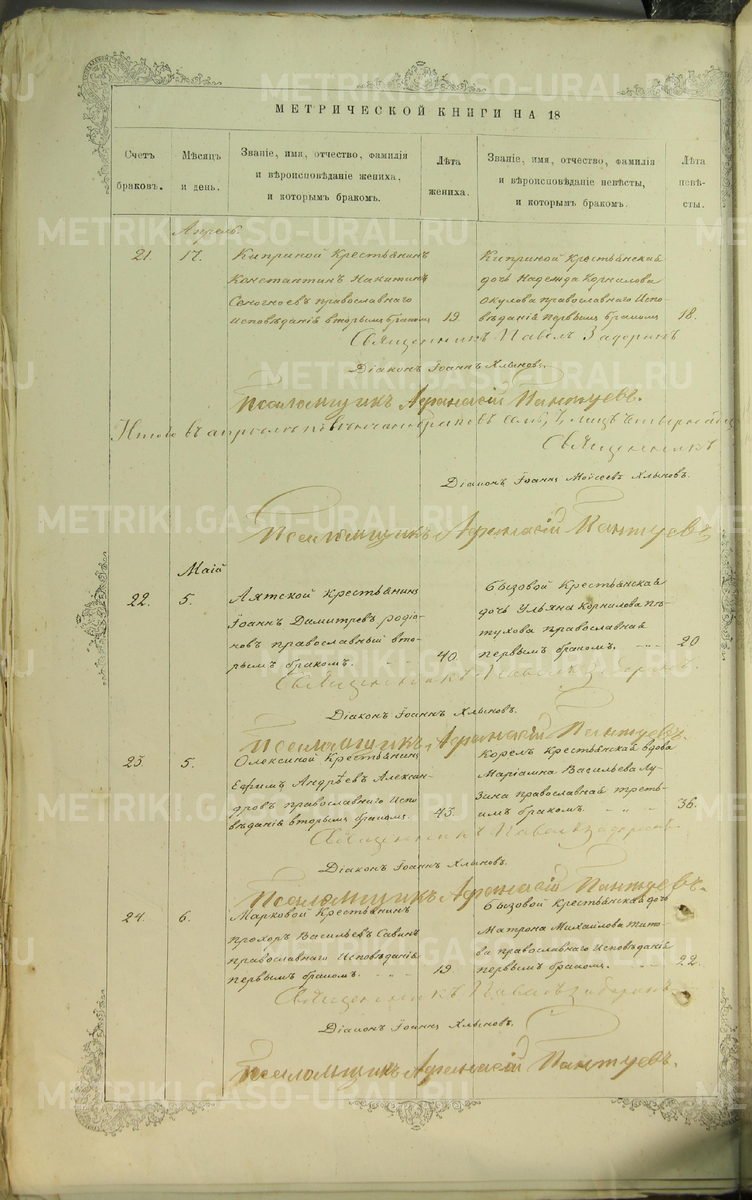 METRIKI.GASO-URAL.RU
МЕТРИЧЕСКОЙ КНИГИ НА 18
Счетъ браковъ.
Мѣсяцъ и день.
Званіе, имя, отчество, фамилія и вѣроисповѣданіе жениха, и которымъ бракомъ.
Лѣта жениха.
Званіе, имя, отчество, фамилія и вѣроисповѣданіе невѣсты, и которымъ бракомъ.
Лѣта невѣсты.
Апрель
21. 17. Киприной Крестьянинъ
Константинъ Никитинъ
православнаго
исповѣданія вторымъ бракомъ 19
Киприной Крестьянская
дочь Надежда Корнилова
Окулова православнаго Испо-
вѣданія первымъ бракомъ 18.
Священникъ Павелъ Задоринъ
Діаконъ Іоаннъ Хлыновъ.
Псаломщикъ Афанасій Пантуевъ.
Итого въ апрелѣ повѣнчано браковъ семь, лицъ четырнадцать
Священникъ
Діаконъ Іоаннъ Моѵсеевъ Хлыновъ.
Псаломщикъ Афанасій Пантуевъ
Маій
22. 5. Аятской Крестьянинъ
Іоаннъ Димитровъ Родіо-
новъ православный вто-
рымъ бракомъ. 40
Бызовой Крестьянская
дочь Ульяна Корнилова Пѣ-
тухова православная
первымъ бракомъ. 20
Священникъ Павелъ Задоринъ
Діаконъ Іоаннъ Хлыновъ.
Псаломщикъ Афанасій Пантуевъ.
23. 5. Олексиной Крестьянинъ
Ефимъ Андрѣевъ Алексан-
дровъ православнаго Испо-
вѣданія вторымъ бракомъ. 43.
Корелъ Крестьянская вдова
Маріамна Васильева Лу-
зина православная треть-
имъ бракомъ. 36.
Священникъ Павелъ Задоринъ
Діаконъ Іоаннъ Хлыновъ.
Псаломщикъ Афанасій Пантуевъ.
24. 6. Марковой Крестьянинъ
Прохоръ Васильевъ Савинъ
православнаго Исповѣданія
первымъ бракомъ. 19
Бызовой Крестьянская дочь
Матрона Михайлова Тито-
ва православнаго Исповѣданія
первымъ бракомъ. 22.
Священникъ Павелъ Задоринъ
Діаконъ Іоаннъ Хлыновъ.
Псаломщикъ Афанасій Пантуевъ.